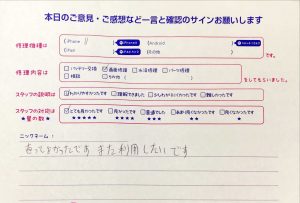 本日のご意見・ご感想など一言と確認のサインお願いします
修理機種は
iPhone 11
Android
iPad
その他
です。
修理内容は
バッテリー交換 画面修理 水没修理 パーツ修理
その他
をしてもらいました。
スタッフの説明は
わかりやすかったです 理解できました 少しわかりにくかったです 難しかったです
スタッフの対応は
★星の数★
とても良かったです 良かったです 普通でした あまり良くなかったです 良くなかったです
★★★★★ ★★★★ ★★★ ★★ ★
ニックネーム：
直ってよかったです また利用したいです